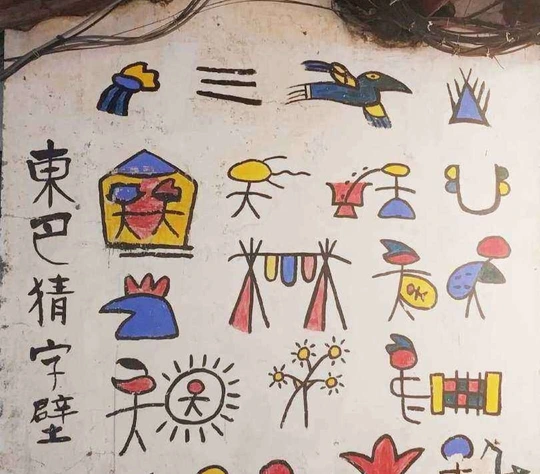 東巴猜字壁